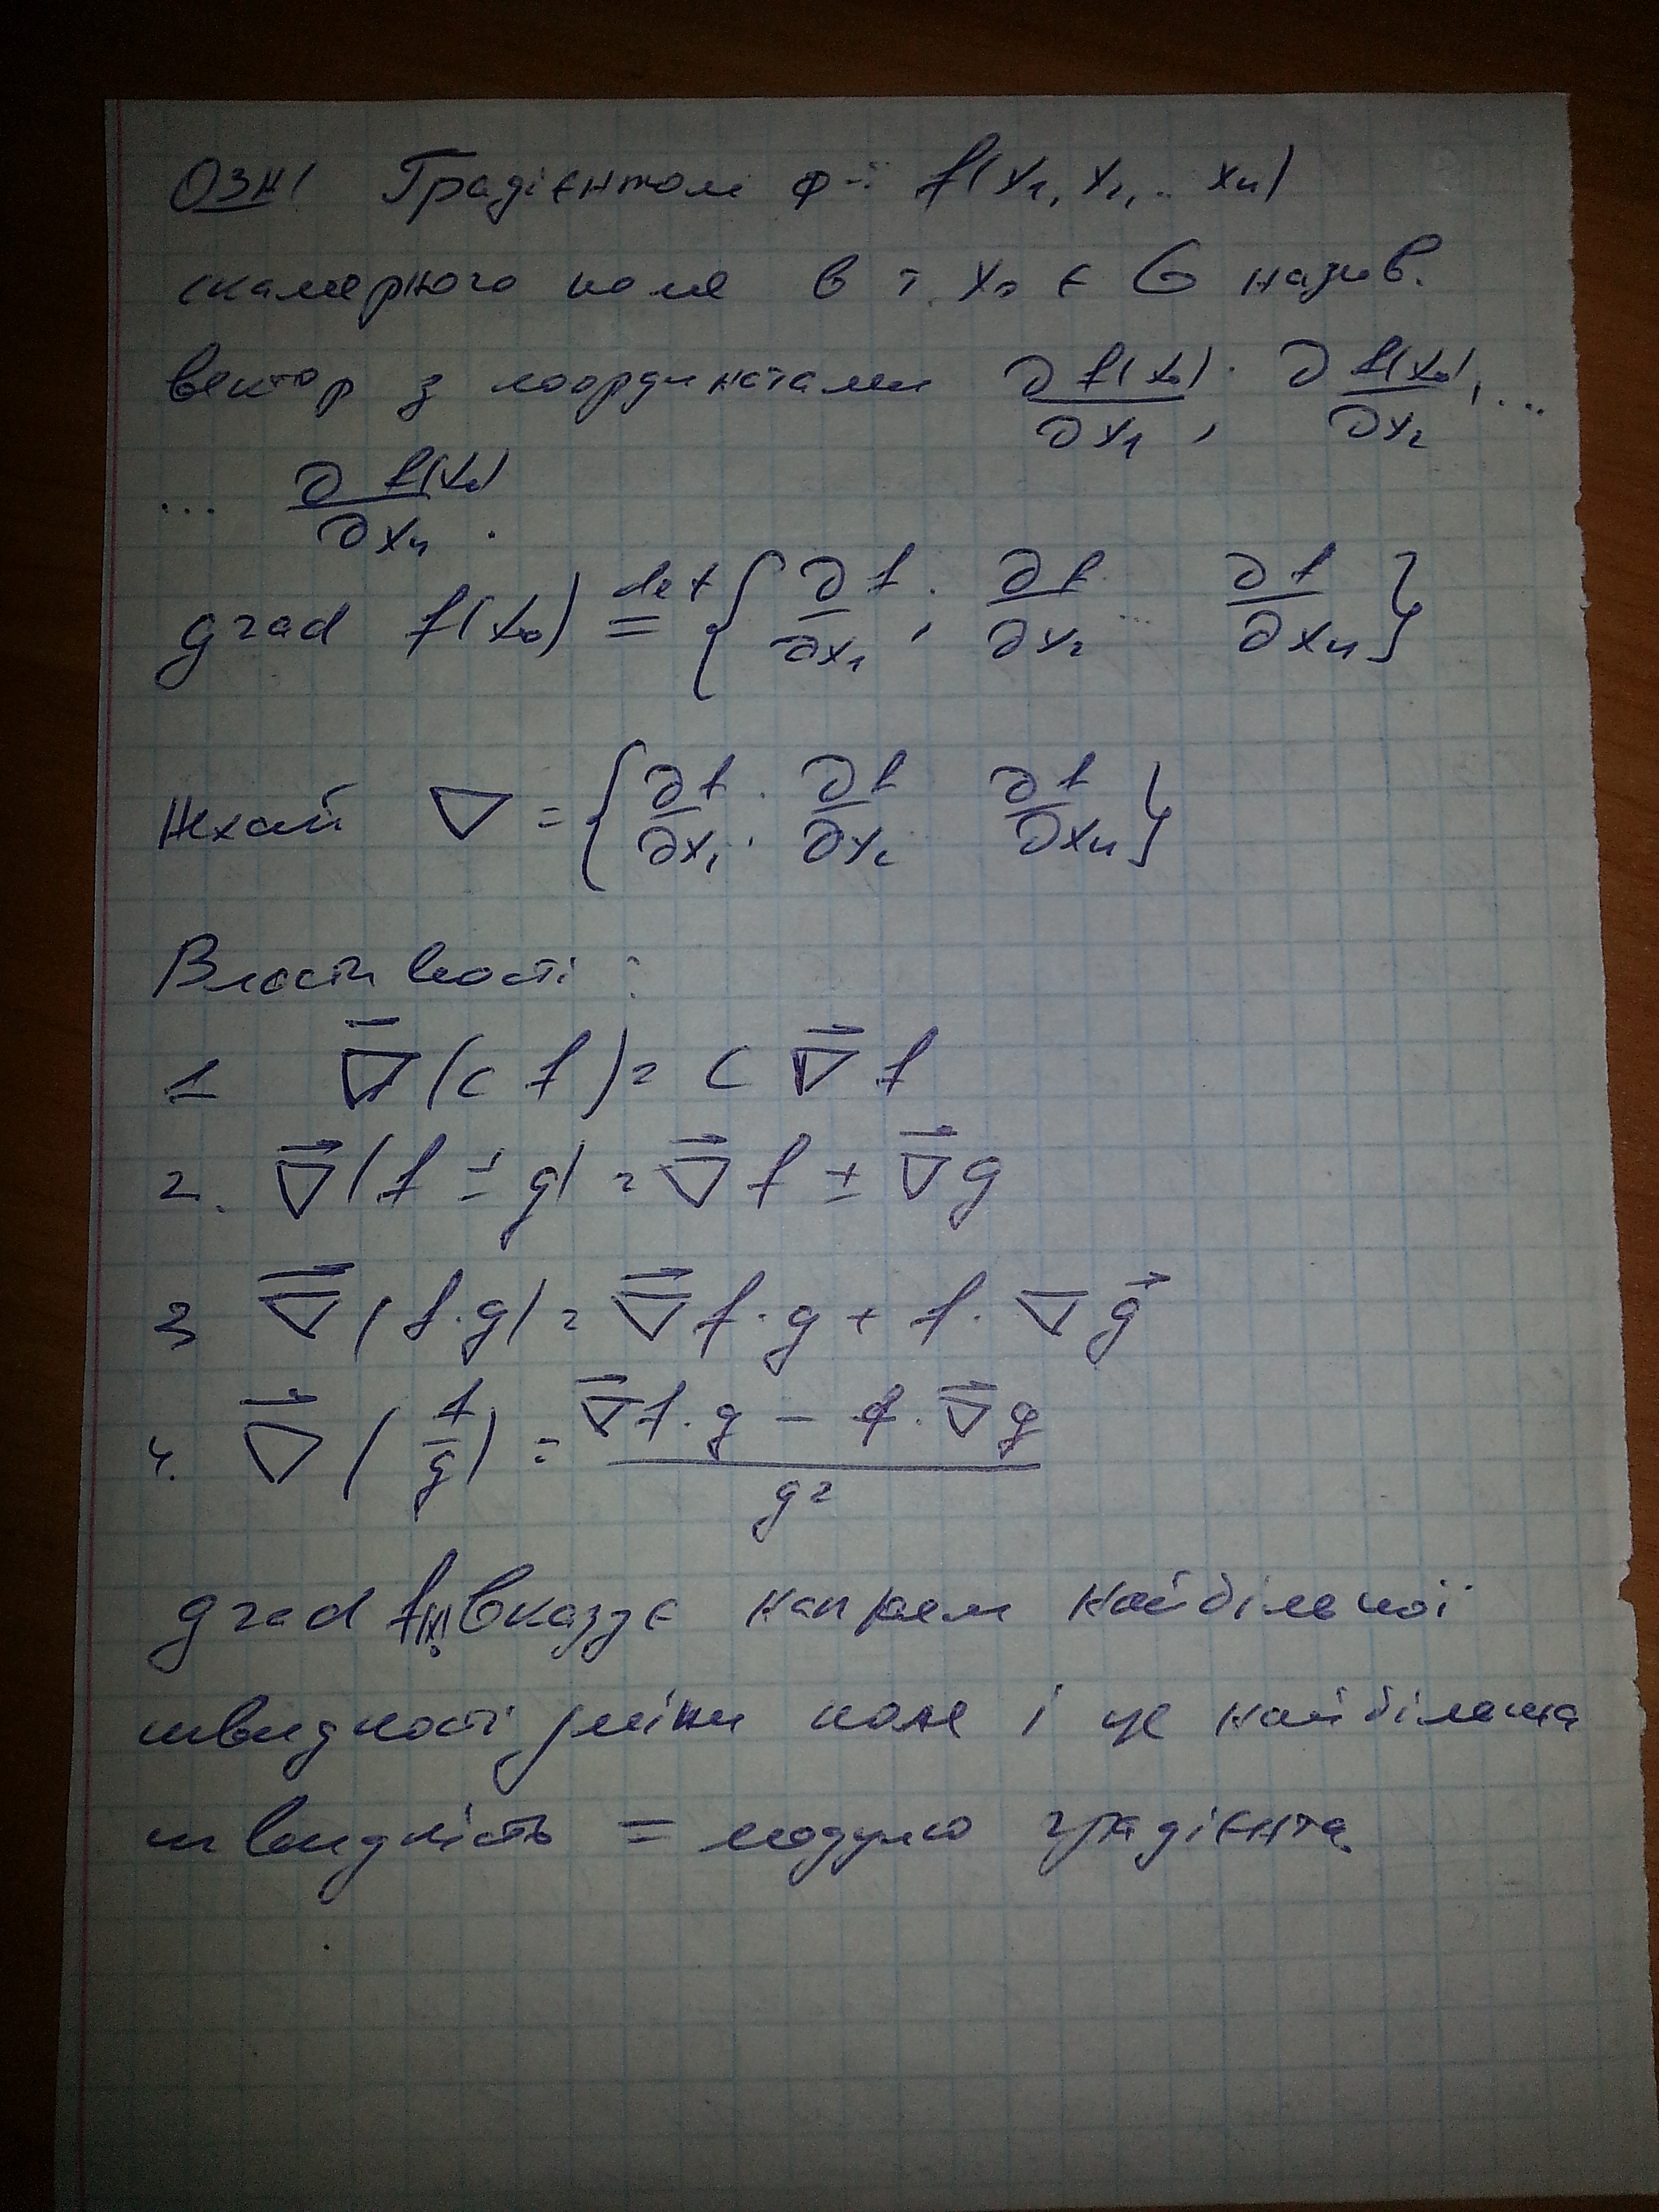 Озн! Градієнтом ф-ї f(x₁, x₂, .. xₙ)
скалярного поля в т. x₀ ∈ G назив.
вектор з координатами ∂f(x₀)/∂x₁, ∂f(x₀)/∂x₂, ...
... ∂f(x₀)/∂xₙ.
grad f(x₀) def= {∂f/∂x₁, ∂f/∂x₂ ... ∂f/∂xₙ}
Нехай ∇ = {∂f/∂x₁, ∂f/∂x₂ ∂f/∂xₙ}
Властивості:
1 ∇̅(c f) = c ∇⃗ f
2. ∇⃗(f ± g) = ∇⃗ f ± ∇⃗ g
3 ∇⃗(f·g) = ∇⃗ f·g + f·∇g⃗
4. ∇⃗(f/g) = (∇⃗f·g − f·∇⃗g)/g²
grad f(x₀) вказує напрям найбільшої
швидкості зміни поля і ця найбільша
швидкість = модулю градієнта